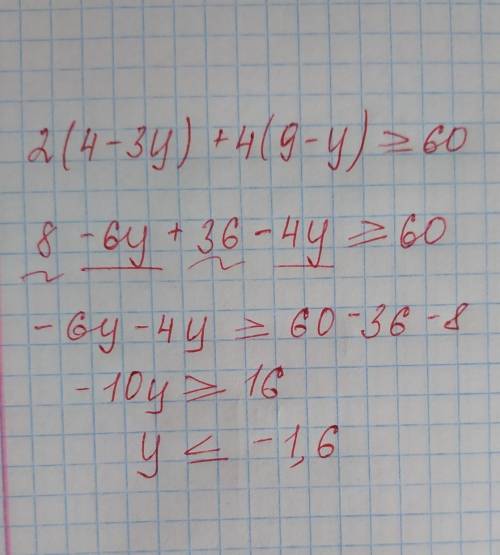 2(4-3y) + 4(9-y) ≥ 60
8 - 6y + 36 - 4y ≥ 60
- 6y - 4y ≥ 60 - 36 - 8
- 10y ≥ 16
y ≤ - 1,6